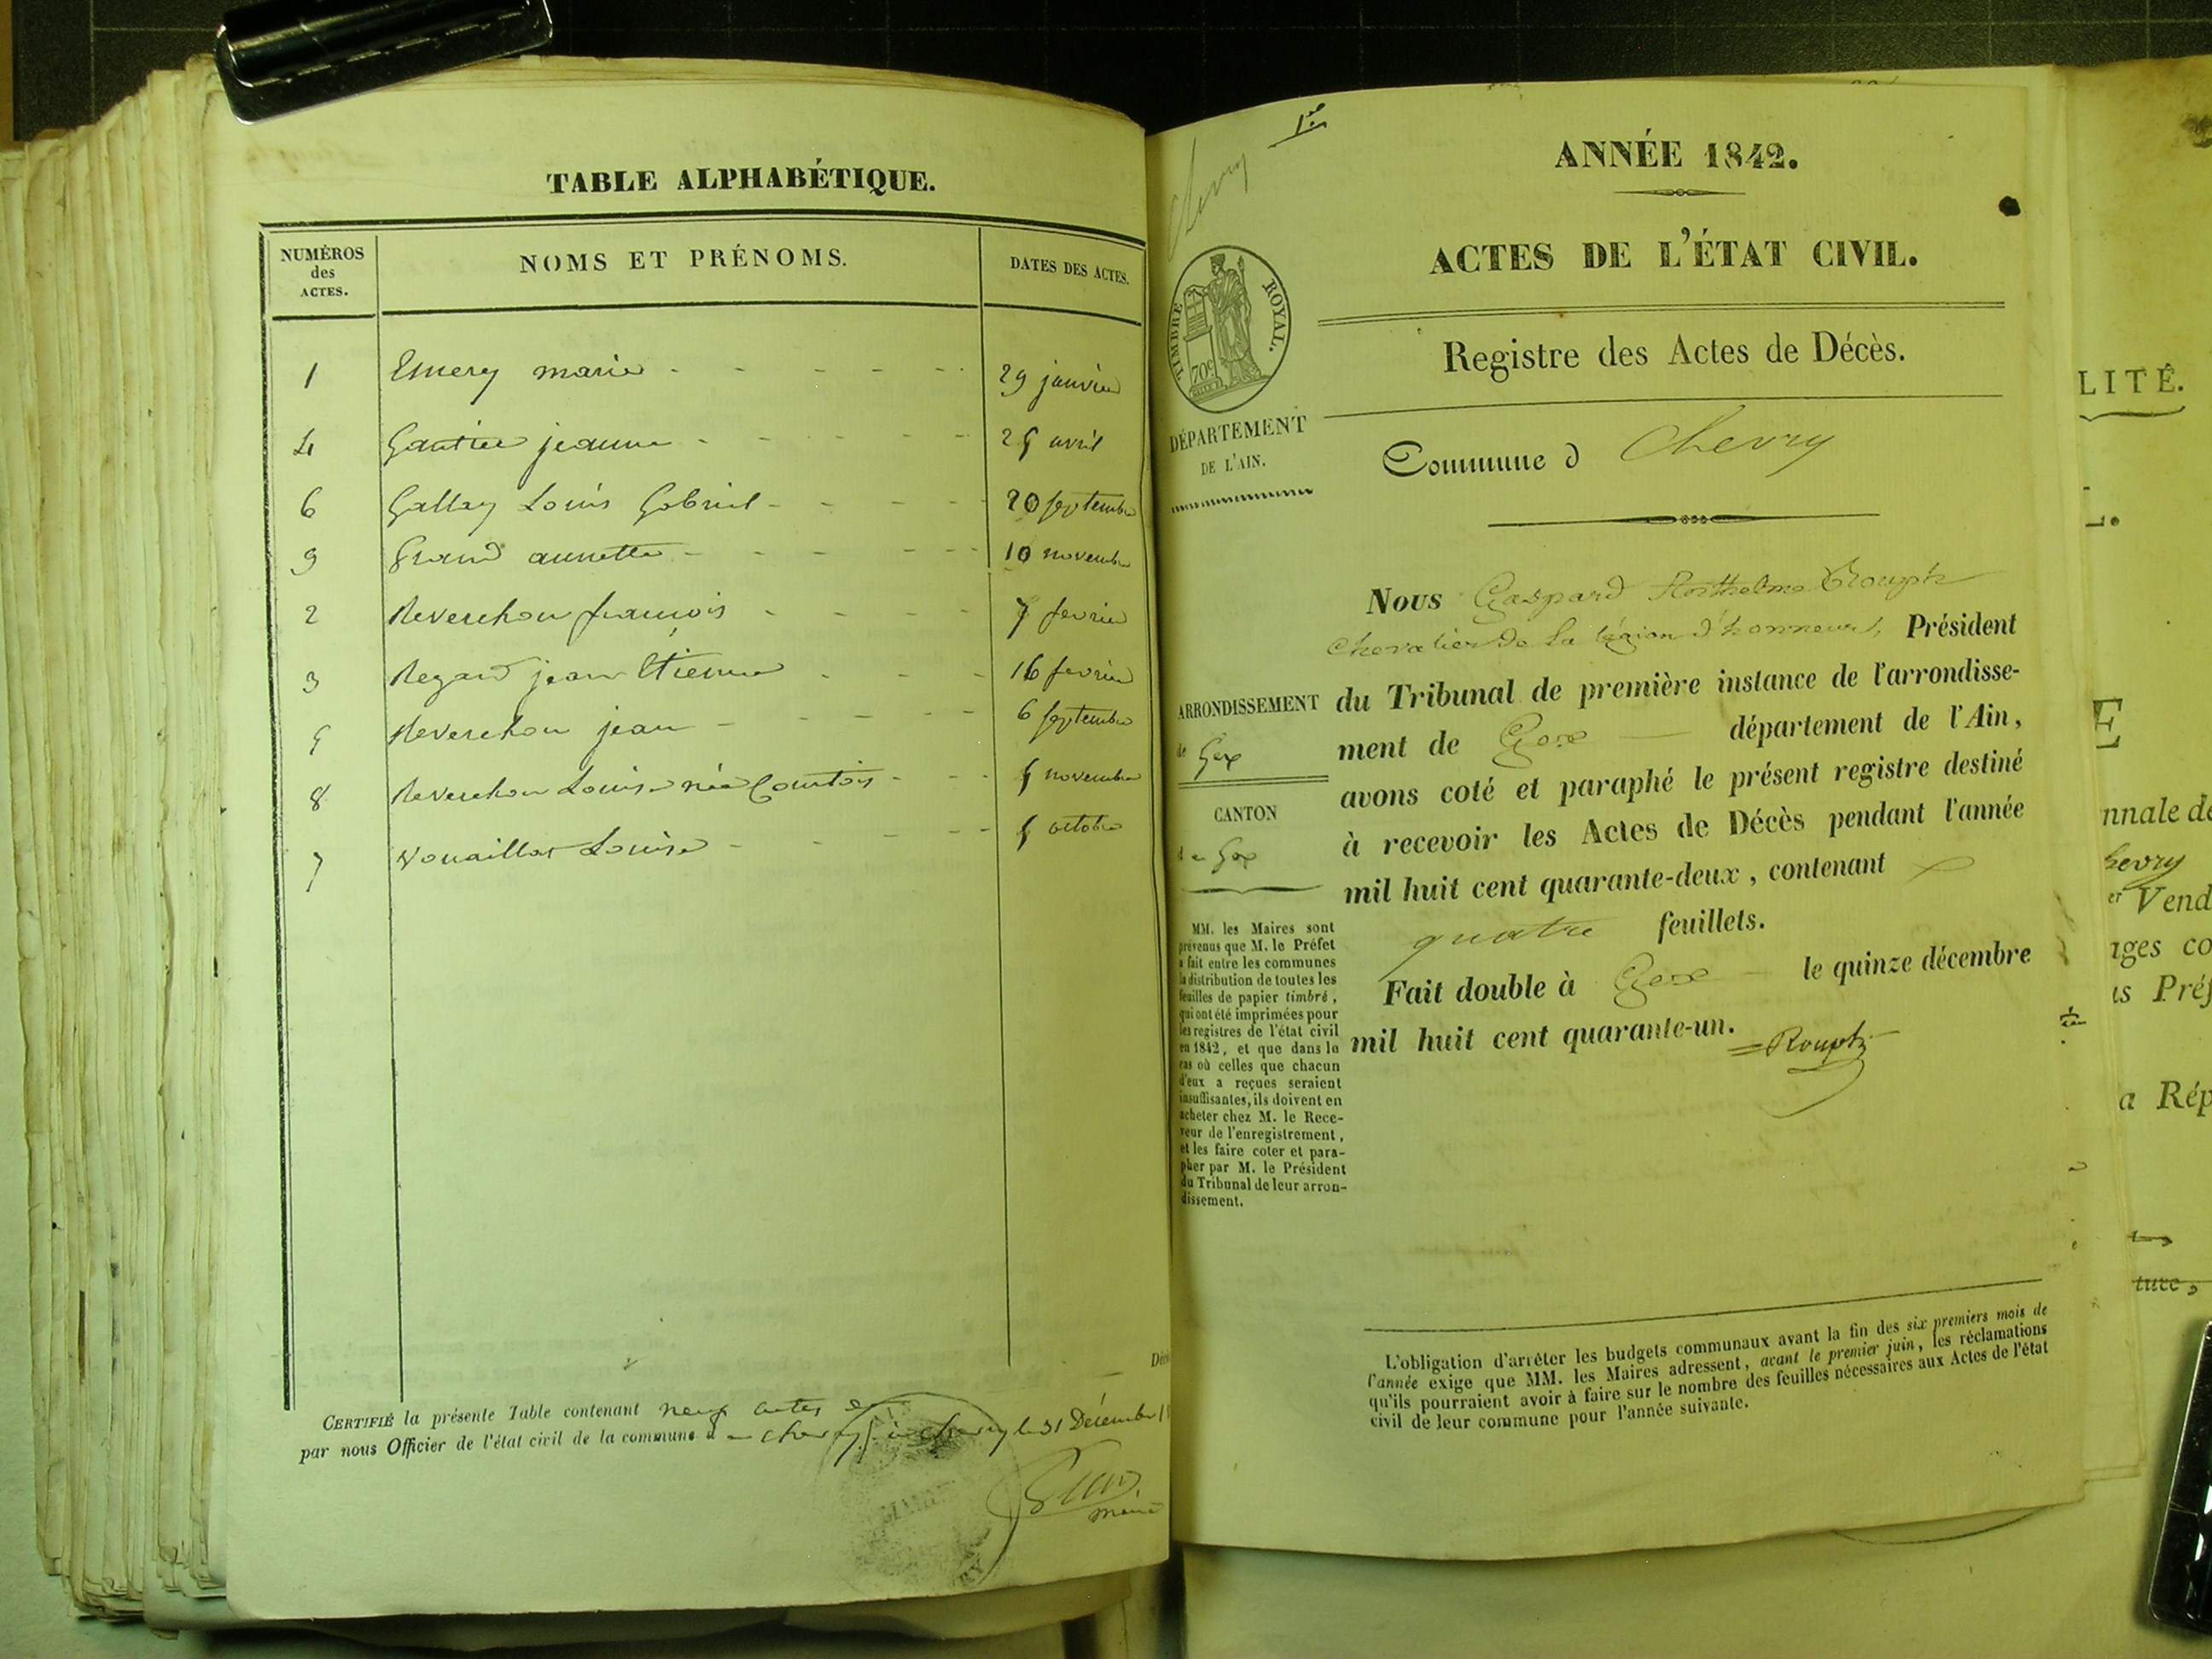 TABLE ALPHABÉTIQUE.
NUMÉROS des ACTES. NOMS ET PRÉNOMS. DATES DES ACTES.
1 Emery marie 29 janvier
4 Gautier jeanne 25 avril
6 Gallay Louis Gabriel 20 septembre
9 Grand annette 10 novembre
2 Reverchon francois 7 fevrier
3 Regard jean Etienne 16 fevrier
5 Reverchon jean 6 septembre
8 Reverchon Louise née Courtois 5 novembre
7 Vouaillat Louise 5 octobre
CERTIFIÉ la présente Table contenant neuf actes
par nous Officier de l'état civil de la commune de chevry à chevry le 31 Décembre
maire
1er
Chevry
TIMBRE ROYAL.
70c
DÉPARTEMENT
DE L'AIN.
ARRONDISSEMENT
de Gex
CANTON
de Gex
MM. les Maires sont
prévenus que M. le Préfet
a fait entre les communes
la distribution de toutes les
feuilles de papier timbré,
qui ont été imprimées pour
les registres de l'état civil
en 1842, et que dans le
cas où celles que chacun
d'eux a reçues seraient
insuffisantes, ils doivent en
acheter chez M. le Rece-
veur de l'enregistrement,
et les faire coter et para-
pher par M. le Président
du Tribunal de leur arron-
dissement.
ANNÉE 1842.
ACTES DE L'ÉTAT CIVIL.
Registre des Actes de Décès.
Commune d Chevry
Nous Gaspard Anthelme Rouph
chevalier de la légion d'honneur, Président
du Tribunal de première instance de l'arrondisse-
ment de Gex département de l'Ain,
avons coté et paraphé le présent registre destiné
à recevoir les Actes de Décès pendant l'année
mil huit cent quarante-deux, contenant
quatre feuillets.
Fait double à Gex le quinze décembre
mil huit cent quarante-un.
L'obligation d'arrêter les budgets communaux avant la fin des six premiers mois de
l'année exige que MM. les Maires adressent, avant le premier juin, les réclamations
qu'ils pourraient avoir à faire sur le nombre des feuilles nécessaires aux Actes de l'état
civil de leur commune pour l'année suivante.
LITÉ.
L.
E
nnale de
hevry
er Vend
ages co
us Préf
a Rép
ture,